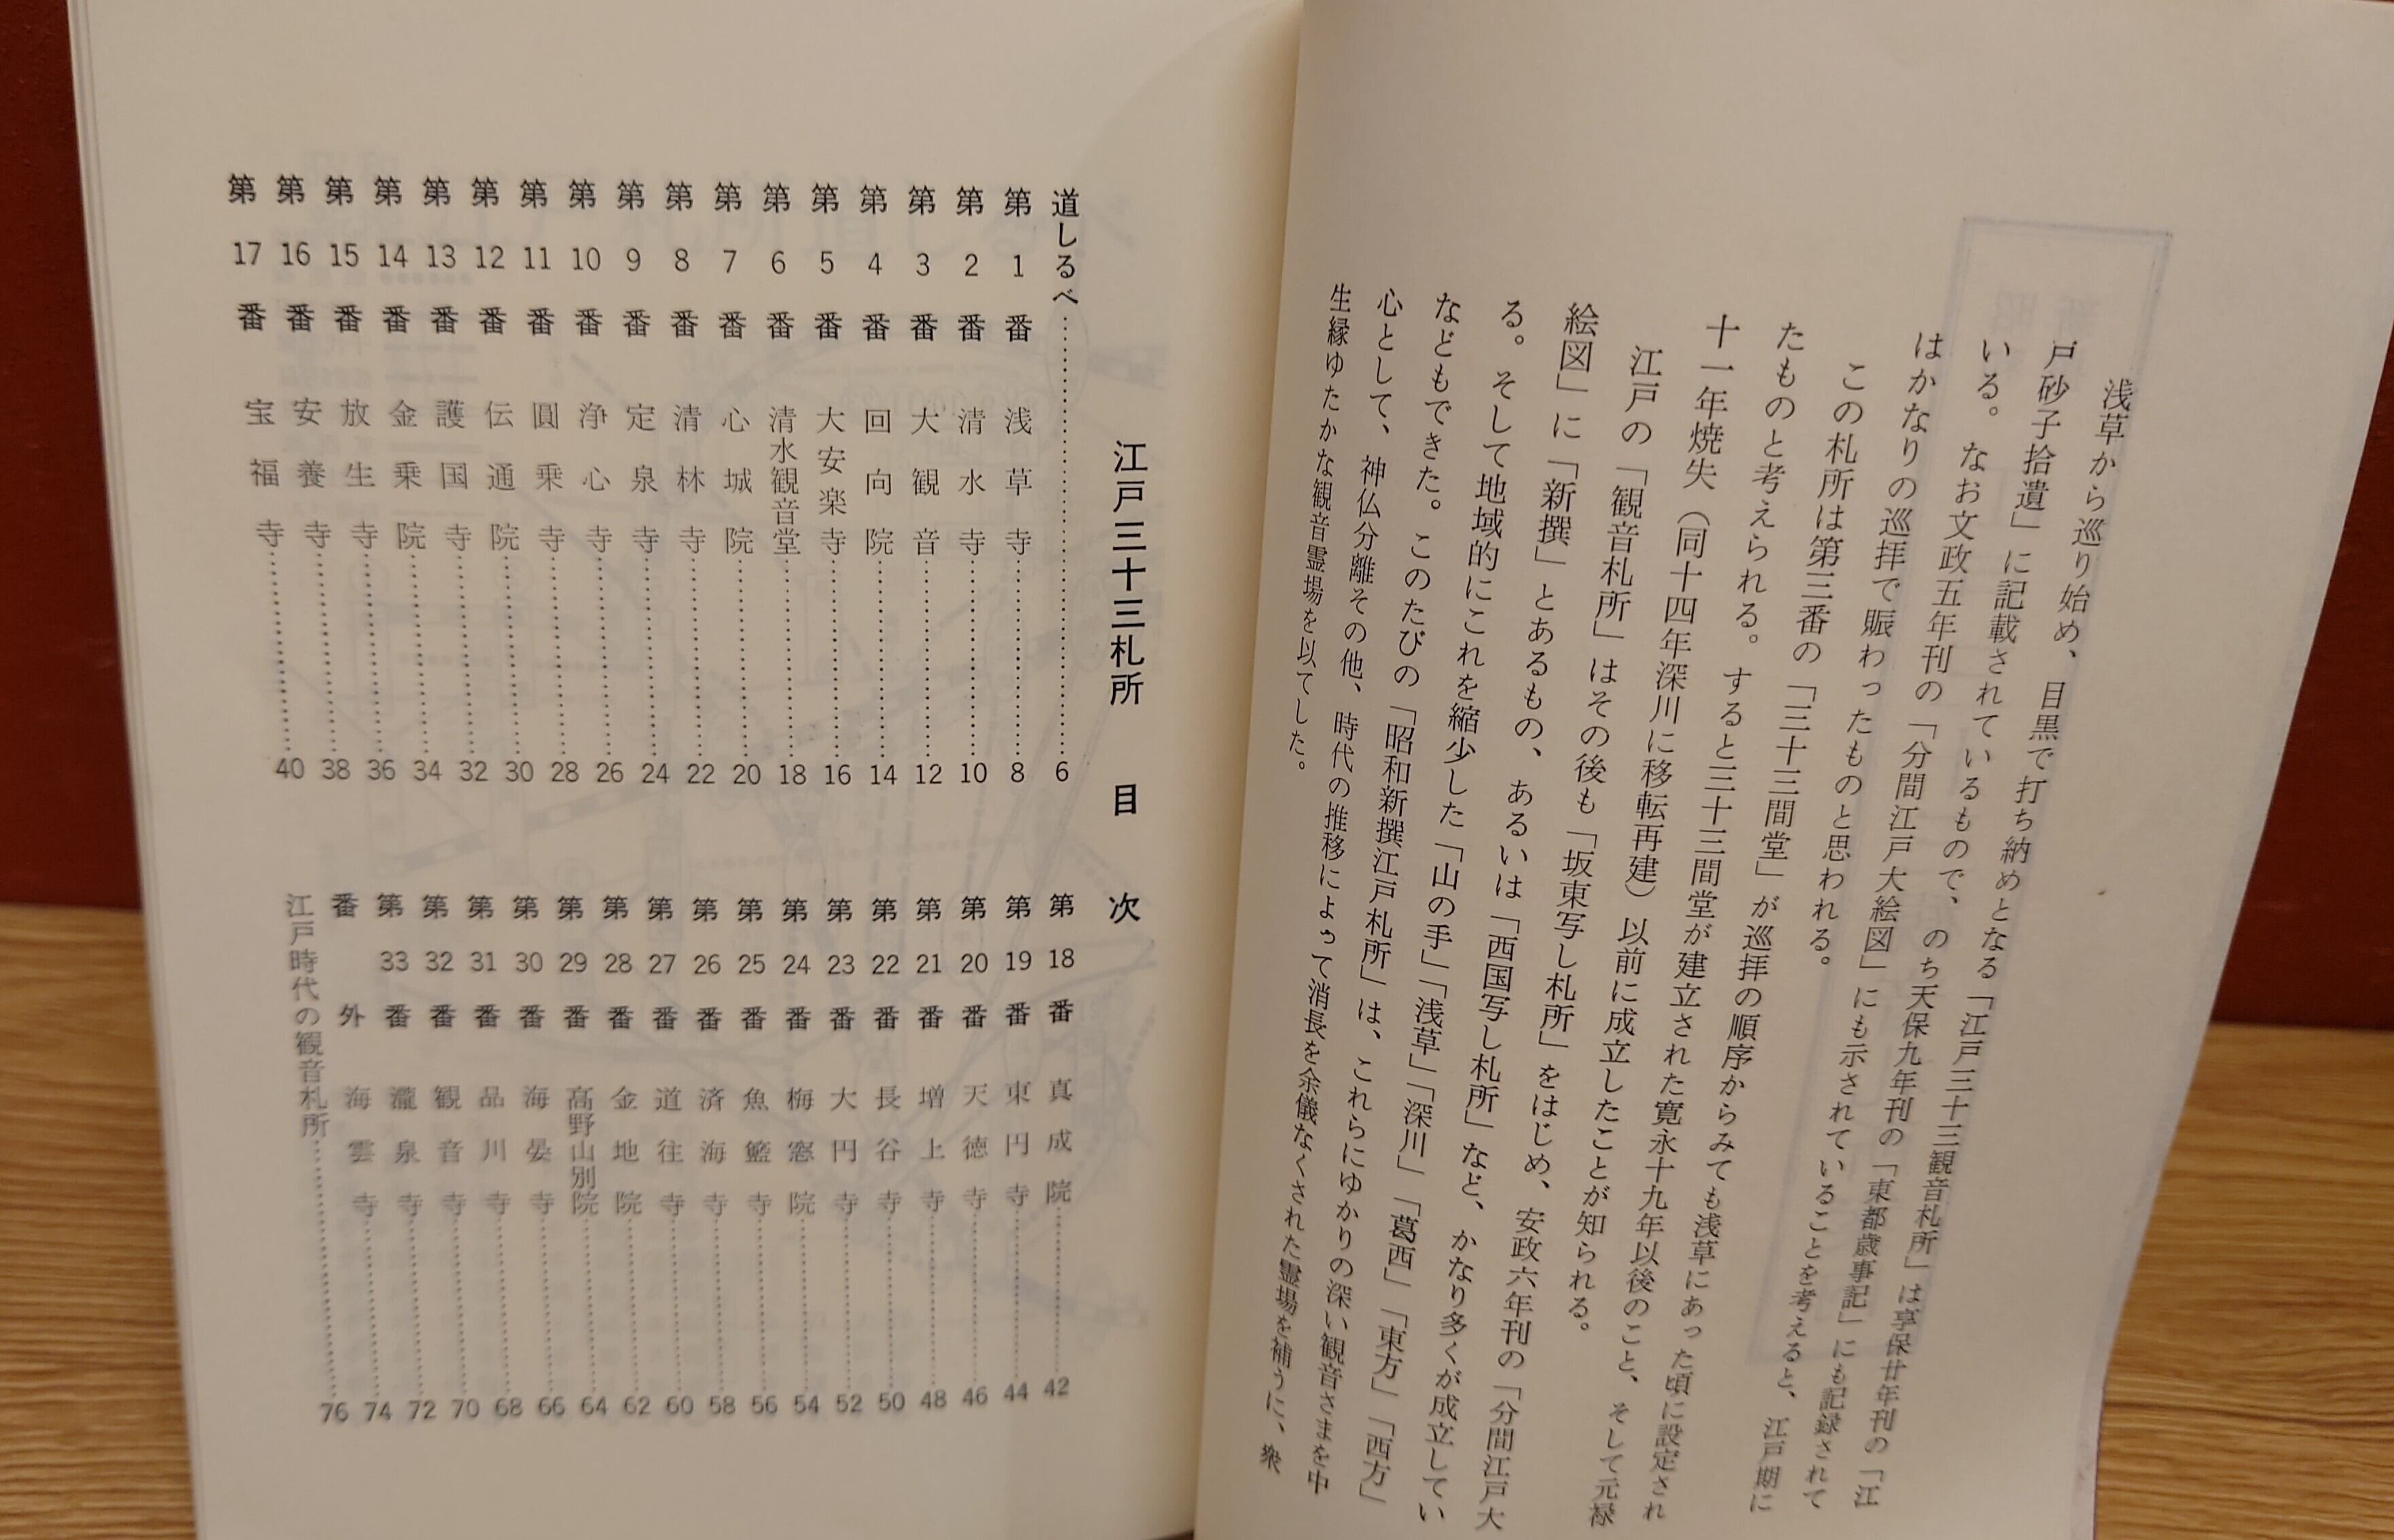 浅草から巡り始め、目黒で打ち納めとなる「江戸三十三観音札所」は享保廿年刊の「江
戸砂子拾遺」に記載されているもので、のち天保九年刊の「東都歳事記」にも記録されて
いる。なお文政五年刊の「分間江戸大絵図」にも示されていることを考えると、江戸期に
はかなりの巡拝で賑わったものと思われる。
この札所は第三番の「三十三間堂」が巡拝の順序からみても浅草にあった頃に設定され
たものと考えられる。すると三十三間堂が建立された寛永十九年以後のこと、そして元禄
十一年焼失（同十四年深川に移転再建）以前に成立したことが知られる。
江戸の「観音札所」はその後も「坂東写し札所」をはじめ、安政六年刊の「分間江戸大
絵図」に「新撰」とあるもの、あるいは「西国写し札所」など、かなり多くが成立してい
る。そして地域的にこれを縮少した「山の手」「浅草」「深川」「葛西」「東方」「西方」
などもできた。このたびの「昭和新撰江戸札所」は、これらにゆかりの深い観音さまを中
心として、神仏分離その他、時代の推移によって消長を余儀なくされた霊場を補うに、衆
生縁ゆたかな観音霊場を以てした。
江戸三十三札所　目次
道しるべ……6
第1番　浅草寺……8
第2番　清水寺……10
第3番　大観音……12
第4番　回向院……14
第5番　大安楽寺……16
第6番　清水観音堂……18
第7番　心城院……20
第8番　清林寺……22
第9番　定泉寺……24
第10番　浄心寺……26
第11番　圓乗寺……28
第12番　伝通院……30
第13番　護国寺……32
第14番　金乗院……34
第15番　放生寺……36
第16番　安養寺……38
第17番　宝福寺……40
第18番　真成院……42
第19番　東円寺……44
第20番　天徳寺……46
第21番　増上寺……48
第22番　長谷寺……50
第23番　大円寺……52
第24番　梅窓院……54
第25番　魚籃寺……56
第26番　済海寺……58
第27番　道往寺……60
第28番　金地院……62
第29番　高野山別院……64
第30番　海晏寺……66
第31番　品川寺……68
第32番　観音寺……70
第33番　瀧泉寺……72
番外　海雲寺……74
江戸時代の観音札所……76